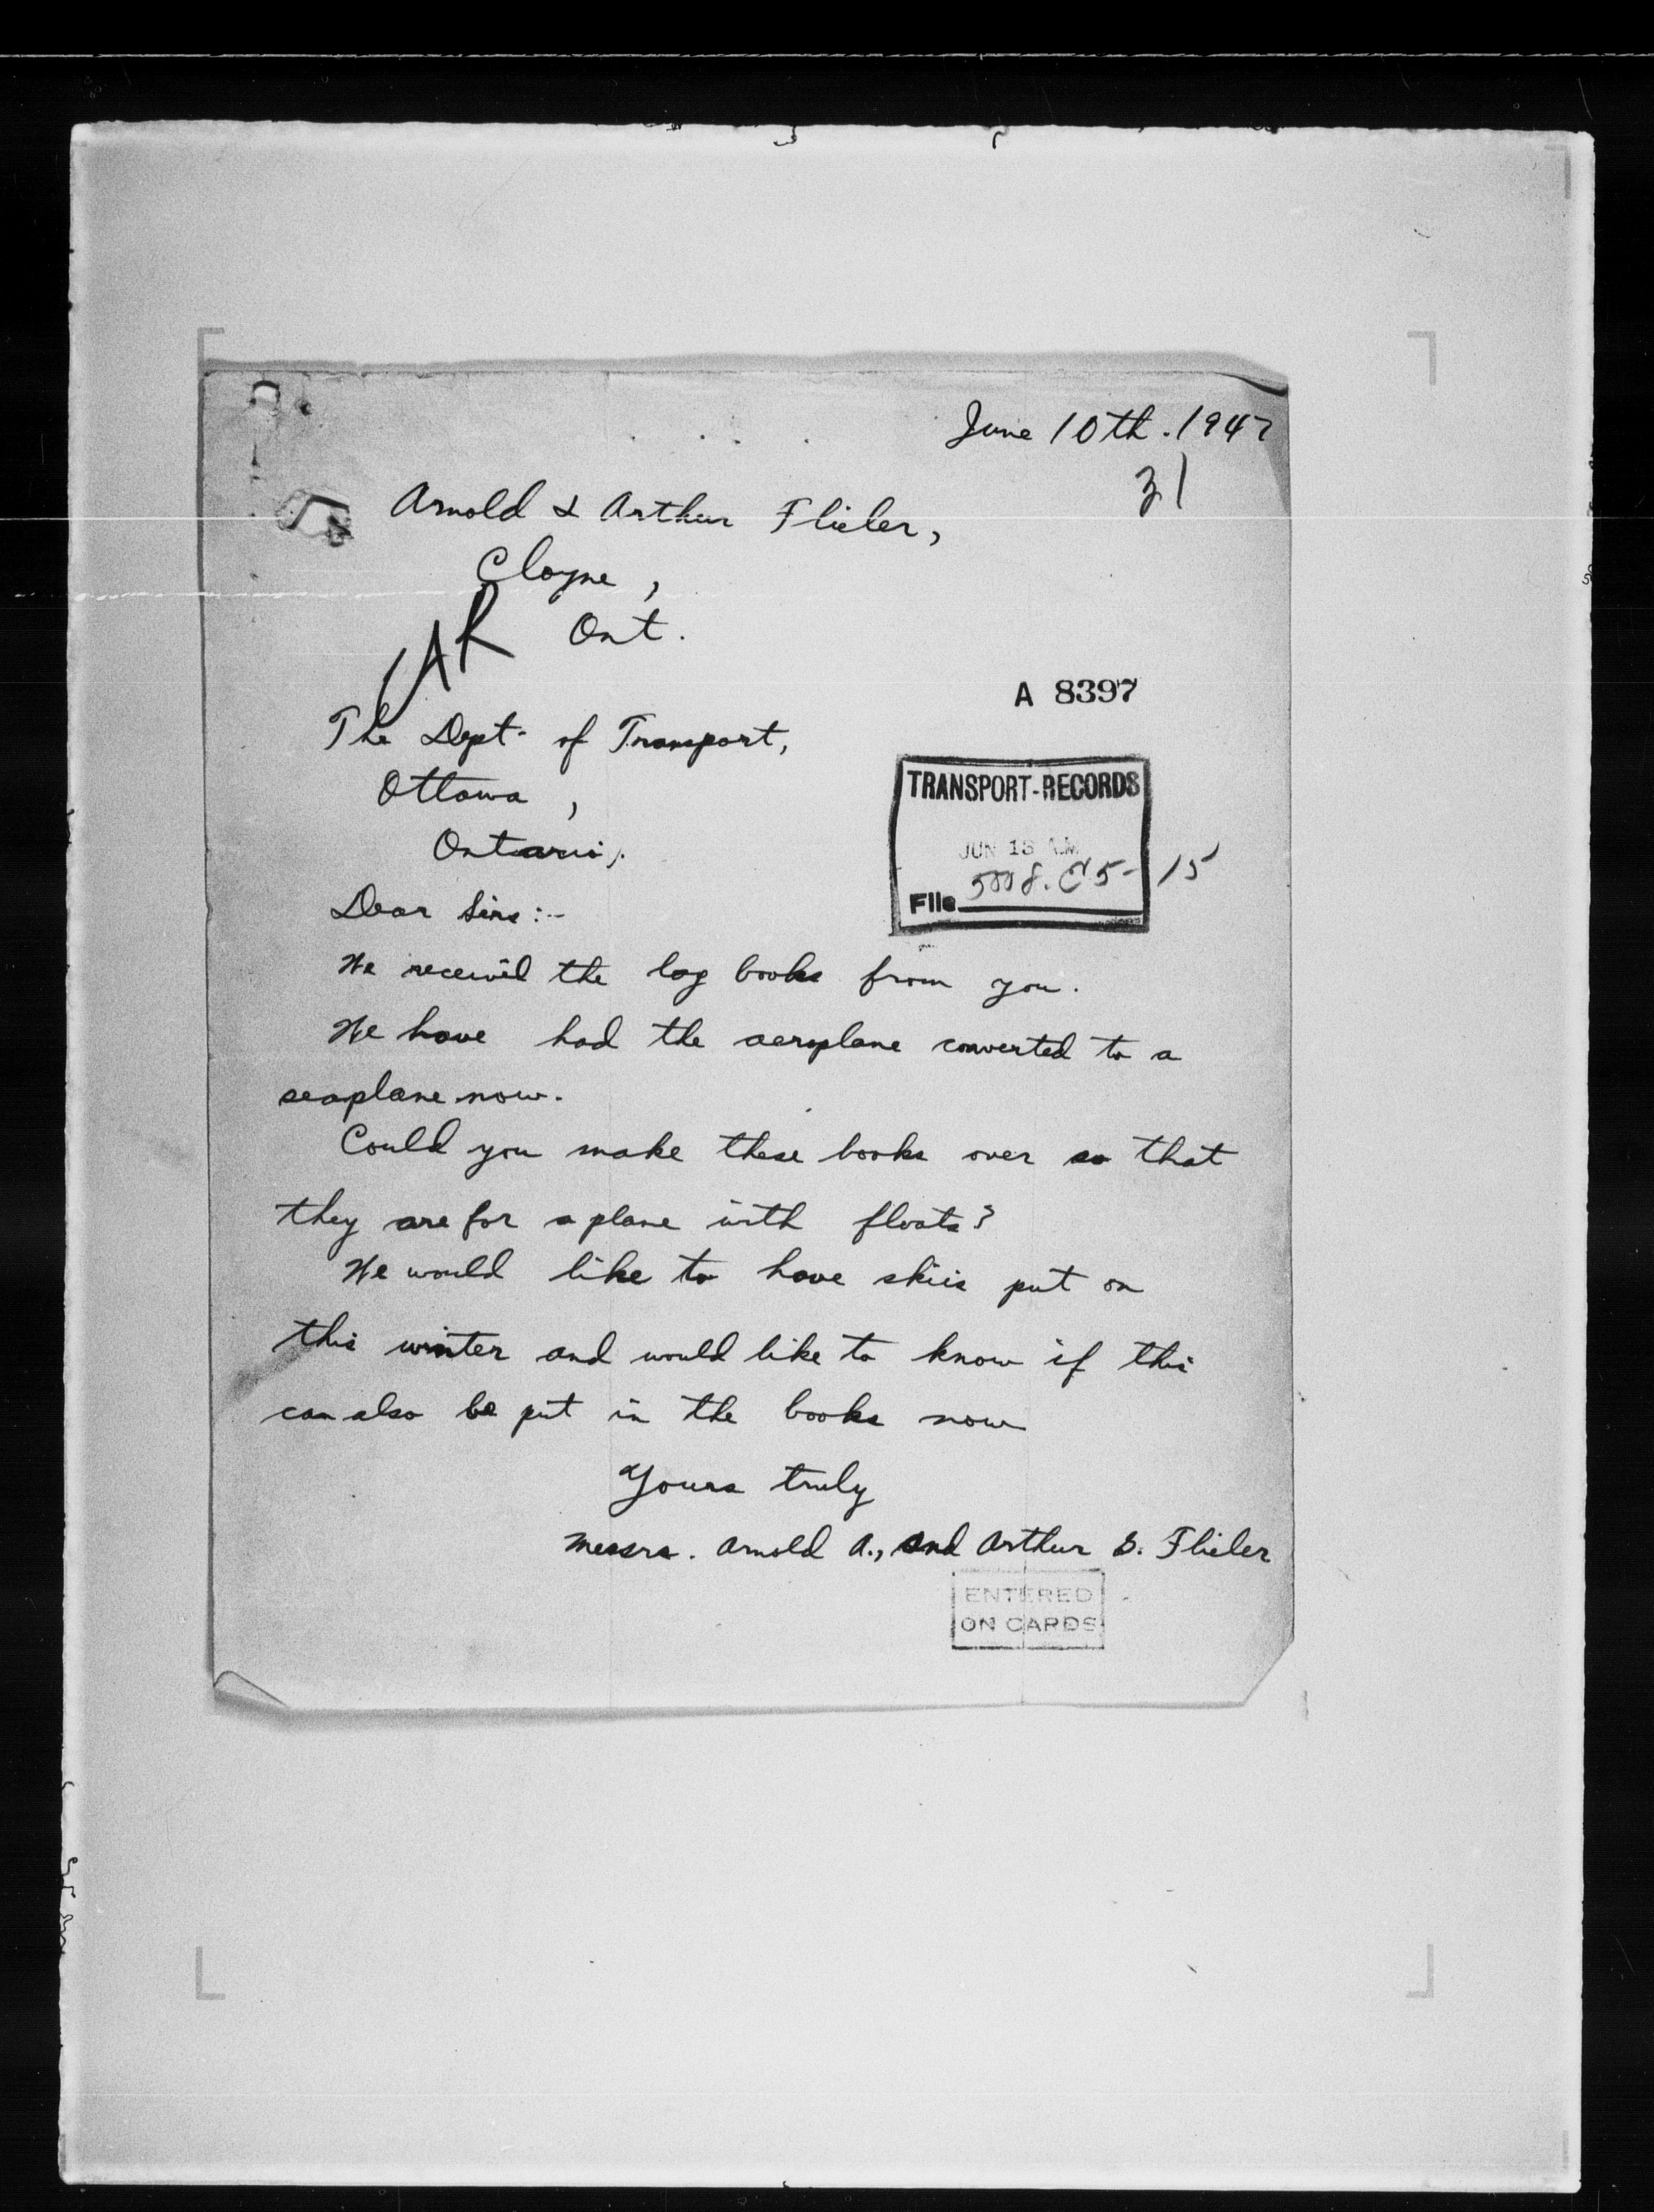 June 10th. 1947
31
Arnold & Arthur Flieler,
Cloyne,
Ont.
AR
A 8397
The Dept. of Transport,
Ottawa,
Ontario,.
TRANSPORT-RECORDS
JUN 13 A.M.
5008. C5-15
File
Dear Sirs:-
We received the log books from you.
We have had the aeroplane converted to a
seaplane now.
Could you make these books over so that
they are for a plane with floats?
We would like to have skiis put on
this winter and would like to know if this
can also be put in the books now
Yours truly
Messrs. Arnold A., and Arthur E. Flieler
ENTERED
ON CARDS